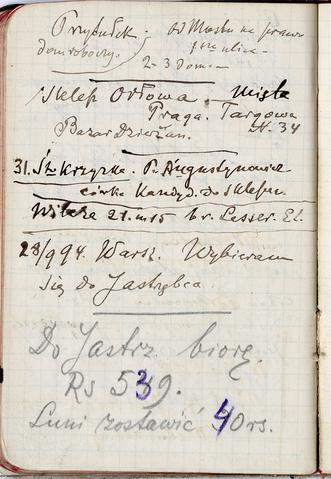 Przytułek. od Mostu na prawo
dom roboczy. 2-3 Domu
Sklep Orłowa. Misla
Praga. Targowa
Bazar N. 34
31. Św. Krzyska. P. Augustynowicz
córka Kandyd. do Sklepu.
Wilcza 21. m 15 br. Lesser. El.
28/9 94. Warsz. Wybieram
się do Jastrzębca.
Do Jastrz. biorę.
Rs 539.
Luni zostawić 40 rs.